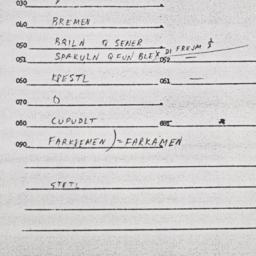 030
040 BREMEN
050 BRILN Q SENER
051 SPRKULN Q FUN BLEX DI FREJM S
052 —
060 KRESTL 061 —
070 O
080 CUPUDLT
090 FARKREMEN ) = FARKAMEN
STETL